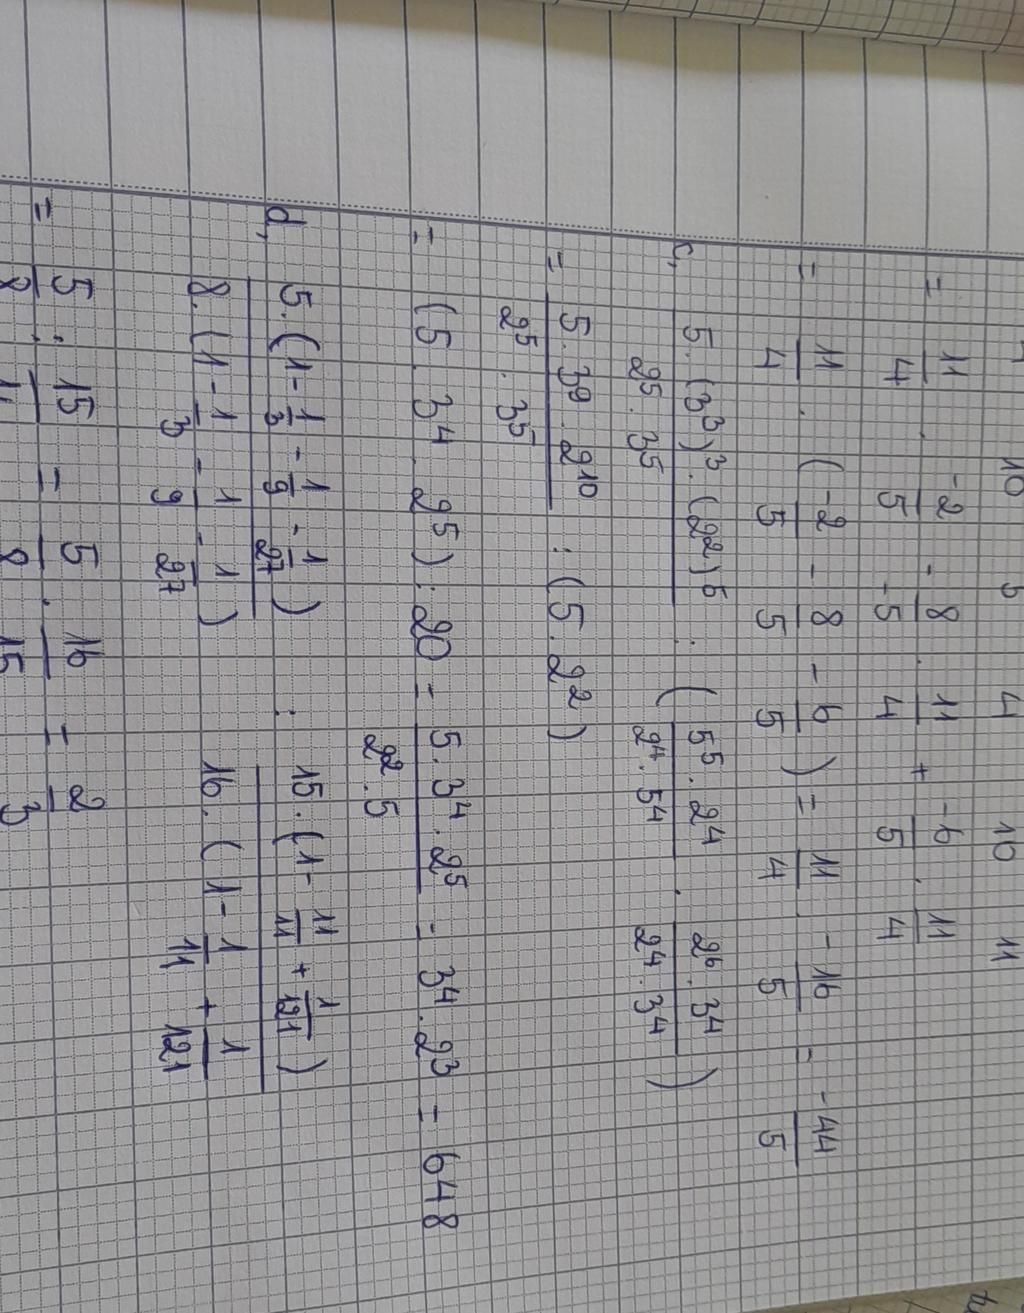 10 5 4 10 11
= 11/4 . -2/5 - 8/-5 . 11/4 + -6/5 . 11/4
= 11/4 . (-2/5 - 8/5 - 6/5) = 11/4 . -16/5 = -44/5
c, 5.(3³)³.(2²)⁵/2⁵.3⁵ : (5⁵.2⁴/2⁴.5⁴ . 2⁶.3⁴/2⁴.3⁴)
= 5.3⁹.2¹⁰/2⁵.3⁵ : (5.2²)
= (5.3⁴.2⁵):20 = 5.3⁴.2⁵/2².5 = 3⁴.2³ = 648
d, 5.(1-1/3-1/9-1/27)/8.(1-1/3-1/9-1/27) : 15.(1-11/11+1/121)/16.(1-1/11+1/121)
= 5/8 : 15/16 = 5/8 . 16/15 = 2/3